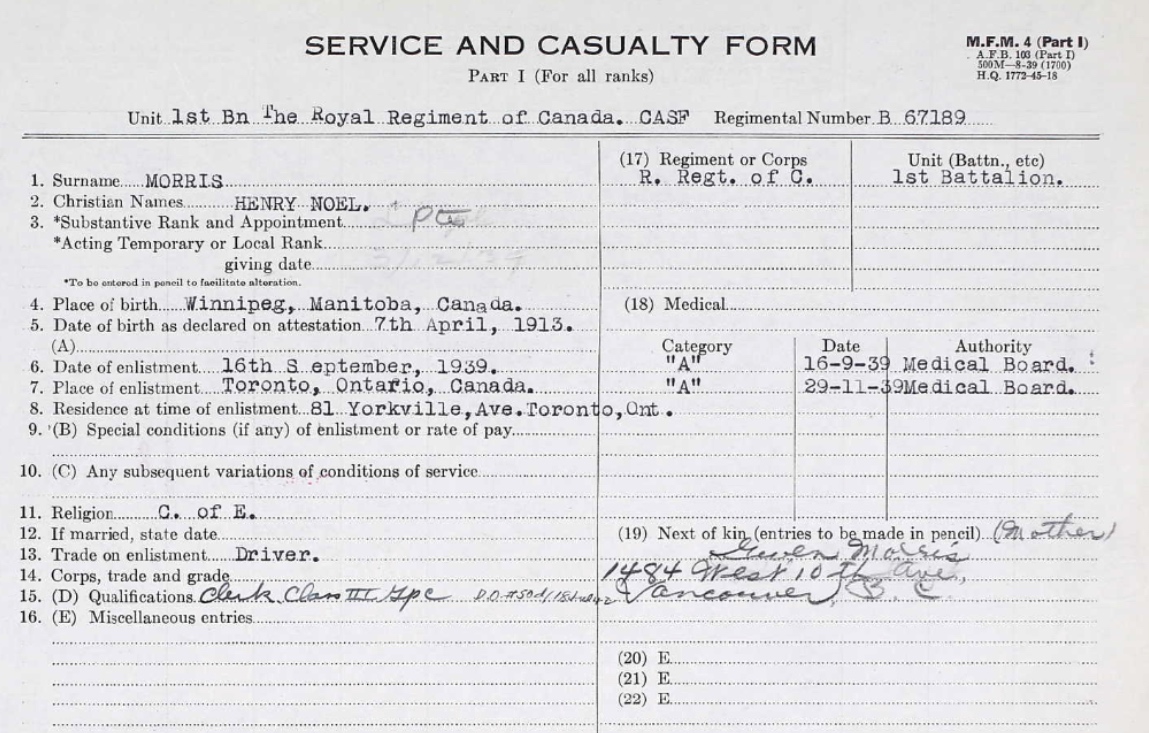 SERVICE AND CASUALTY FORM
M.F.M. 4 (Part I)
A.F.B. 103 (Part I)
500M—8-39 (1700)
H.Q. 1772-45-18
PART I (For all ranks)
Unit 1st Bn The Royal Regiment of Canada. CASF Regimental Number B 67189
1. Surname MORRIS
2. Christian Names HENRY NOEL.
3. *Substantive Rank and Appointment Pte
*Acting Temporary or Local Rank
giving date
*To be entered in pencil to facilitate alteration.
4. Place of birth Winnipeg, Manitoba, Canada.
5. Date of birth as declared on attestation 7th April, 1913.
(A)
6. Date of enlistment 16th S eptember, 1939.
7. Place of enlistment Toronto, Ontario, Canada.
8. Residence at time of enlistment 81 Yorkville,Ave.Toronto,Ont.
9. (B) Special conditions (if any) of enlistment or rate of pay
10. (C) Any subsequent variations of conditions of service
11. Religion C. of E.
12. If married, state date
13. Trade on enlistment Driver.
14. Corps, trade and grade
15. (D) Qualifications Clerk Class III Gp C
16. (E) Miscellaneous entries
(17) Regiment or Corps Unit (Battn., etc)
R. Regt. of C. 1st Battalion.
(18) Medical
Category Date Authority
"A" 16-9-39 Medical Board.
"A" 29-11-39 Medical Board.
(19) Next of kin (entries to be made in pencil) (Mother)
Gwen Morris
1484 West 10th Ave,
Vancouver, B. C.
(20) E
(21) E
(22) E